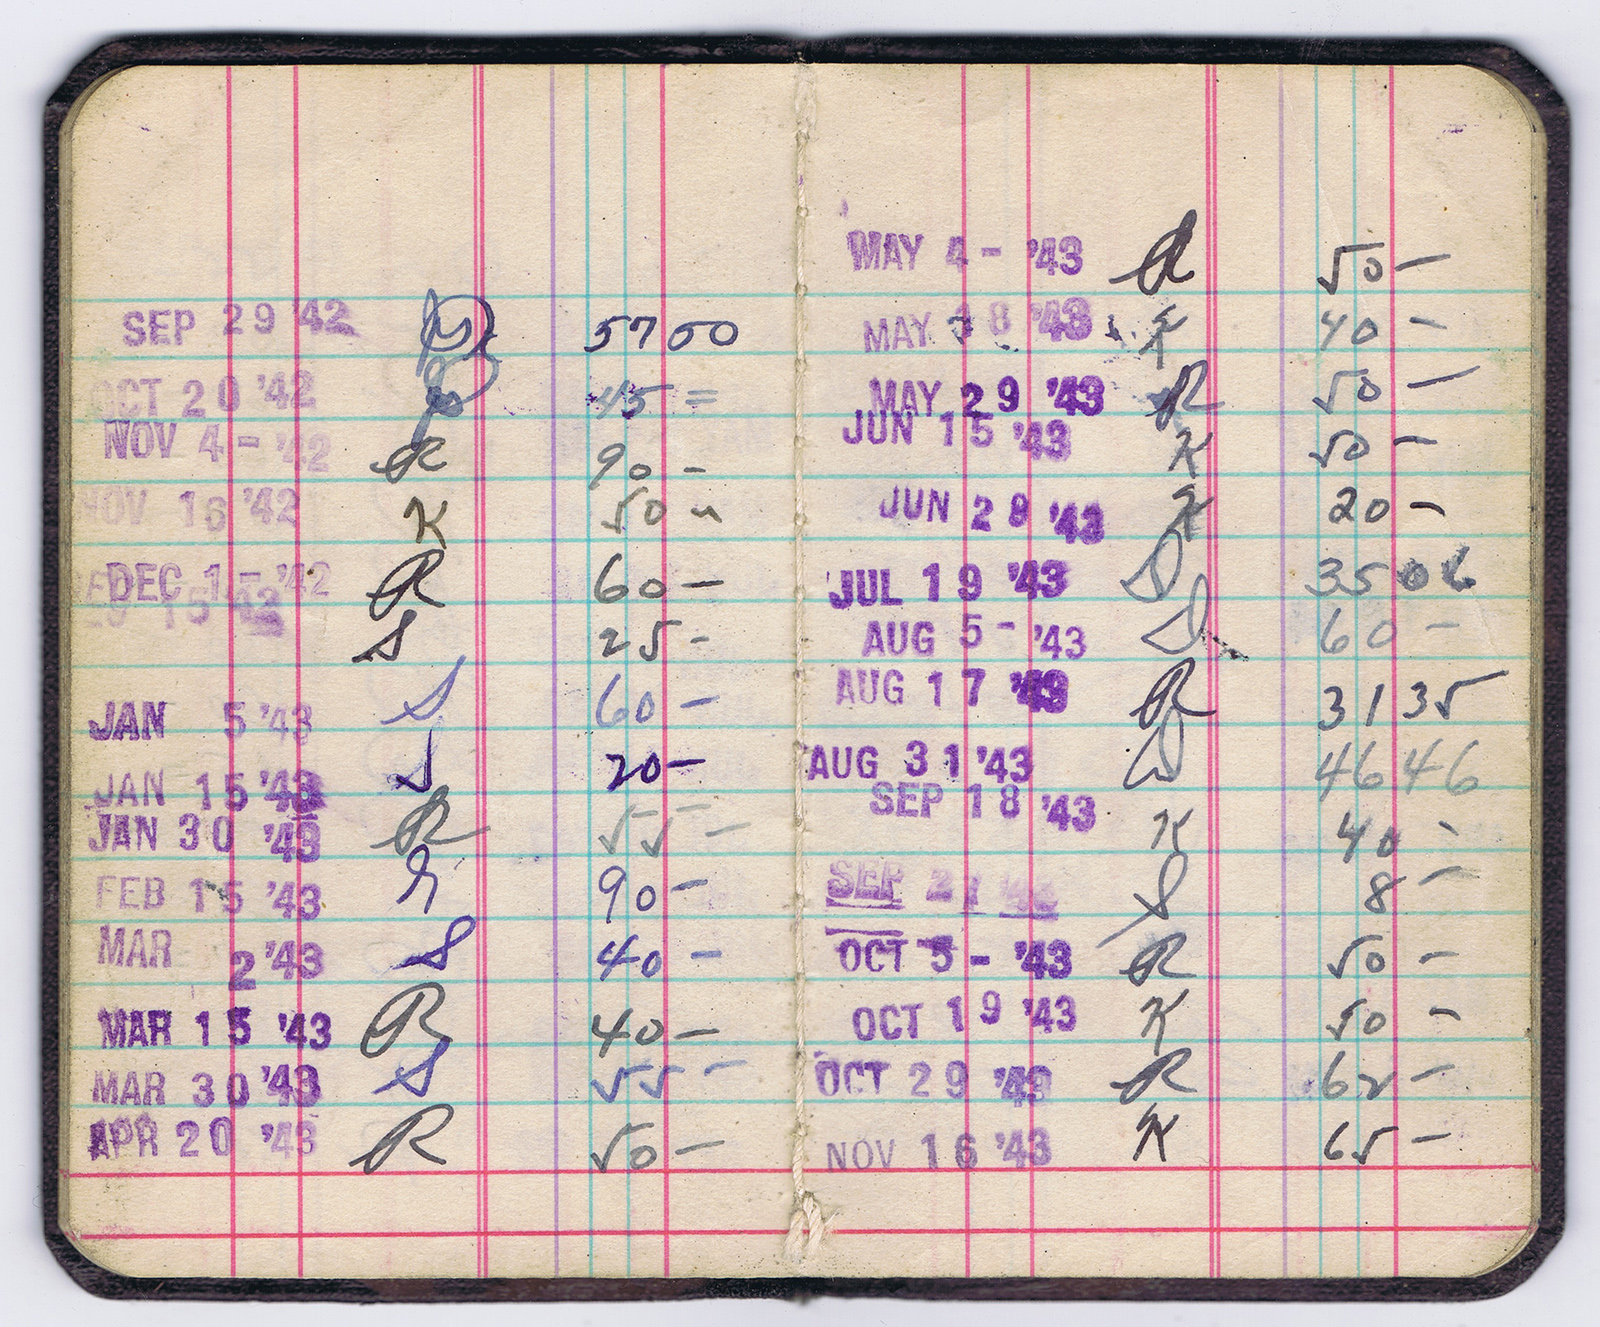 SEP 29 '42 57 00
OCT 20 '42 45 =
NOV 4 - '42 R 90 -
NOV 16 '42 K 50 -
DEC 1 - '42 R 60 -
15 '42 S 25 -
JAN 5 '43 S 60 -
JAN 15 '43 S 20 -
JAN 30 '43 R 55 -
FEB 15 '43 90 -
MAR 2 '43 S 40 -
MAR 15 '43 R 40 -
MAR 30 '43 S 55 -
APR 20 '43 R 50 -
MAY 4 - '43 R 50 -
MAY 18 '43 K 40 -
MAY 29 '43 R 50 -
JUN 15 '43 K 50 -
JUN 28 '43 K 20 -
JUL 19 '43 35 06
AUG 5 - '43 60 -
AUG 17 '43 R 31 35
AUG 31 '43 46 46
SEP 18 '43 K 40 -
SEP S 8 -
OCT 5 - '43 R 50 -
OCT 19 '43 K 50 -
OCT 29 '43 R 62 -
NOV 16 '43 K 65 -